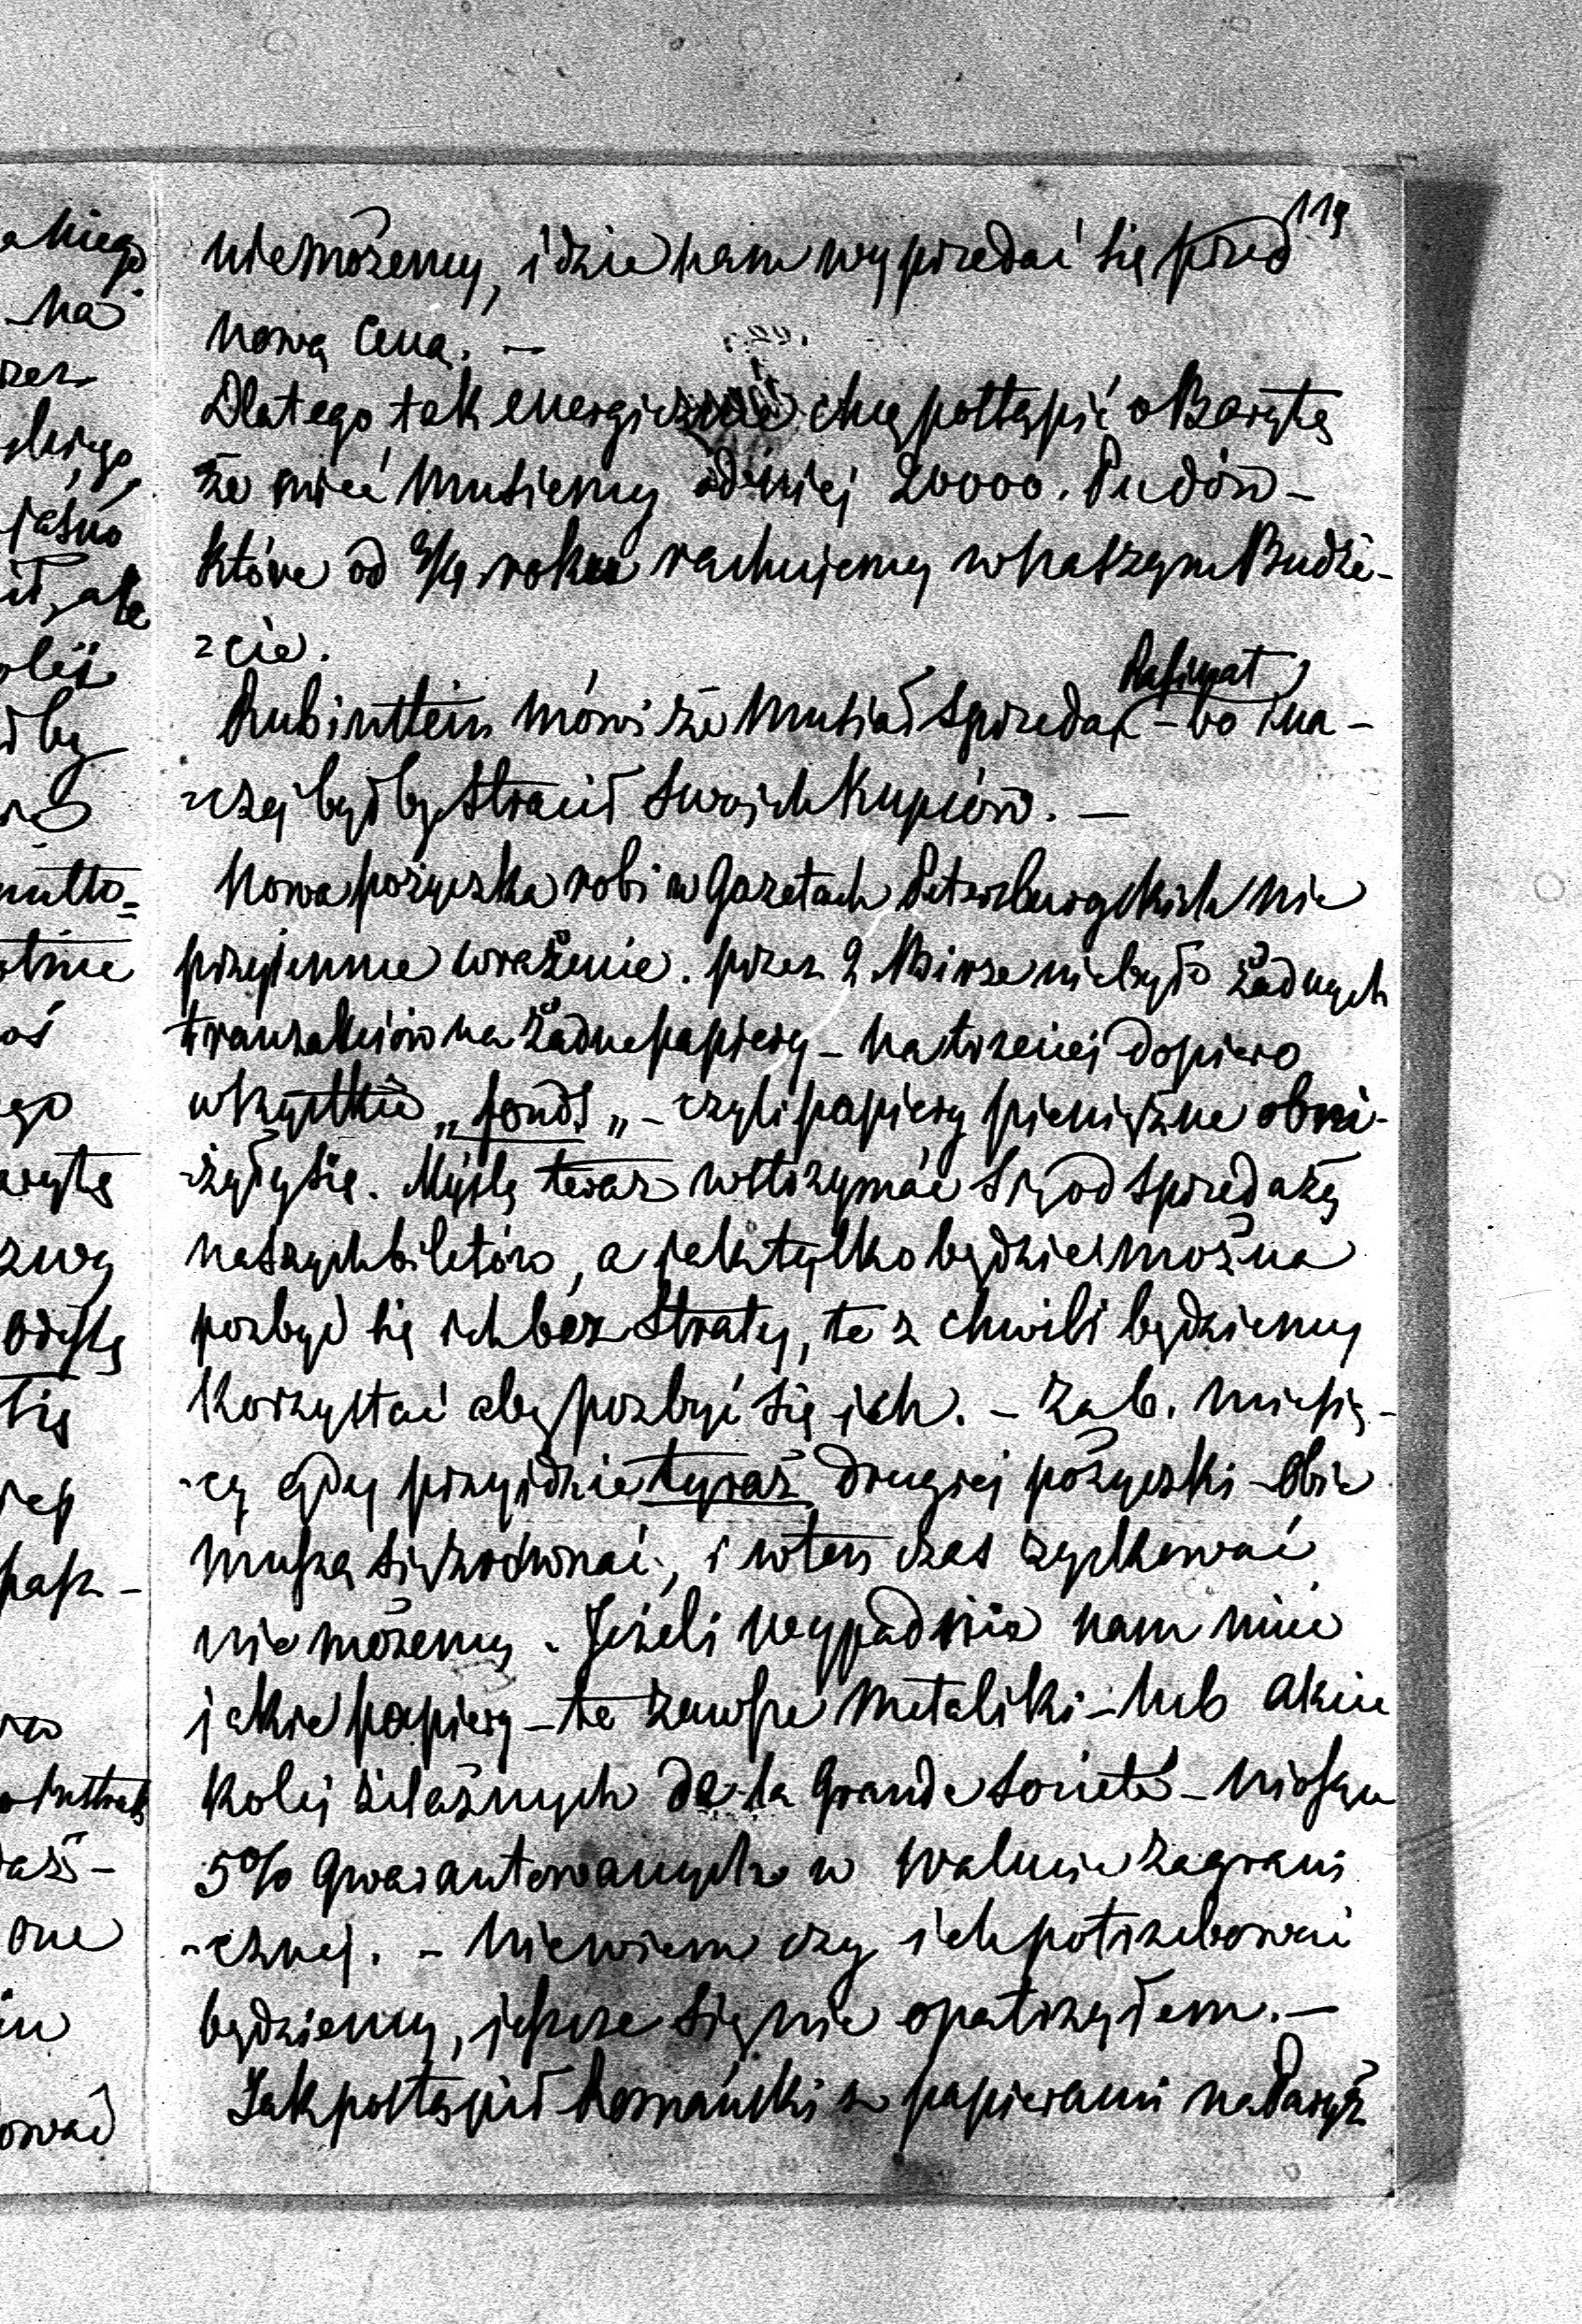 119
niemożemy, idzie nam wyprzedać się przed
nową ceną. —
Dlatego tak energicznie chcę postąpić o Barytę
że mieć musiemy odniej 20000. Pudów –
które od 3/4 roku rachujemy w naszym Budże-
-cie.
Rafinat
Rubinstein mówi że musiał sprzedać – bo ina-
-czej byłby stracił swoich kupców. —
Nowa pożyczka robi w Gazetach Petersburgskich nie
przyjemne wrażenie. przez 2 Birże niebyło żadnych
tranzakciów na żadne papiery – na trzeciej dopiero
wszystkie „fonds„ – czyli papiery pieniężne obni-
-żyły się. Myślę teraz wstrzymać się od sprzedaży
naszych biletów, a jak tylko będzie można
pozbyć się ich bez straty, te z chwili będziemy
korzystać aby pozbyć się ich. – Za 6. miesię-
-cy gdy przyjdzie tyraż drugiej pożyczki – obie
muszą się zrównać, i wten czas zyskować
nie możemy. Jeżeli wypadnie nam mieć
jakie papiery – te zawsze Metaliki – lub akcie
Kolej żelaznych de la Grande Societé – niosące
5% gwarantowanych w walucie zagrani
-cznej. – Niewiem czy ich potrzebować
będziemy, jeszcze się nie opatrzyłem. —
Jak postąpił Rosmański z papierami na Paryż